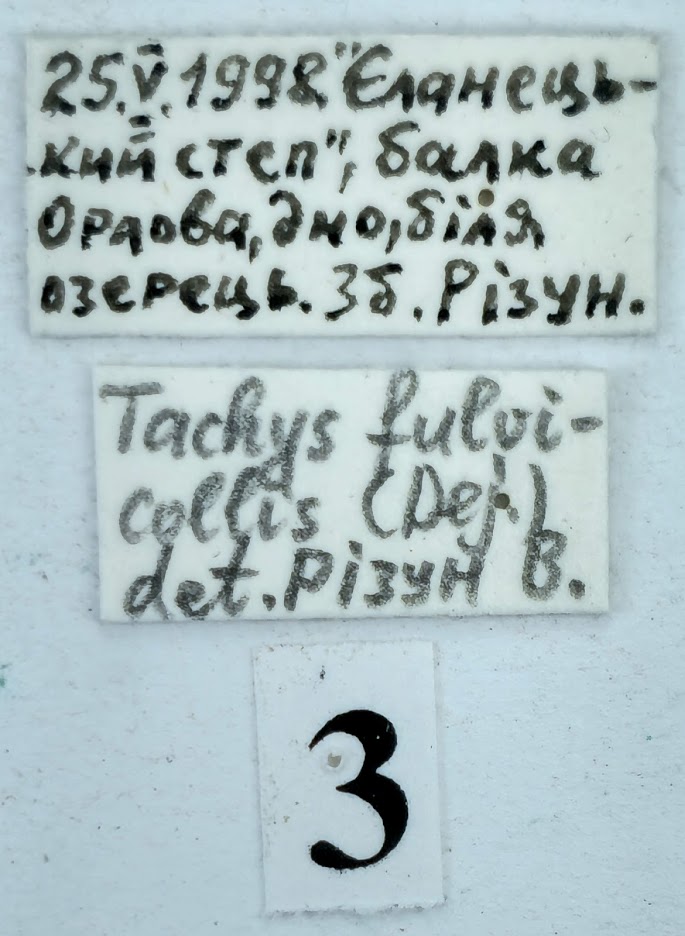 25.V.1998 "Єланець-
кий степ", балка
Орлова, дно, біля
озерець. Зб. Різун.
Tachys fulvi-
collis (Dej.)
det. Різун В.
3